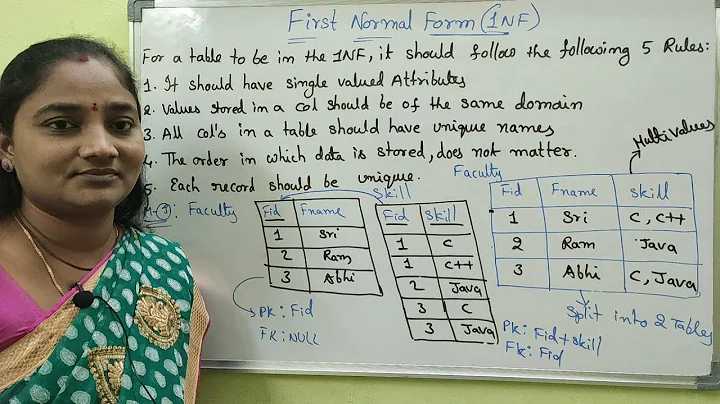 First Normal Form (1NF)
For a table to be in the 1NF, it should follow the following 5 Rules:
1. It should have single valued Attributes
2. Values stored in a col should be of the same domain
3. All col's in a table should have unique names
4. The order in which data is stored, does not matter.
5. Each record should be unique.
Multivalues
Faculty
Fid Fname skill
1 Sri C, C++
2 Ram Java
3 Abhi C, Java
Split into 2 Tables
: Faculty
Fid Fname
1 Sri
2 Ram
3 Abhi
PK: Fid
FK: NULL
Skill
Fid Skill
1 C
1 C++
2 Java
3 C
3 Java
PK: Fid+skill
FK: Fid